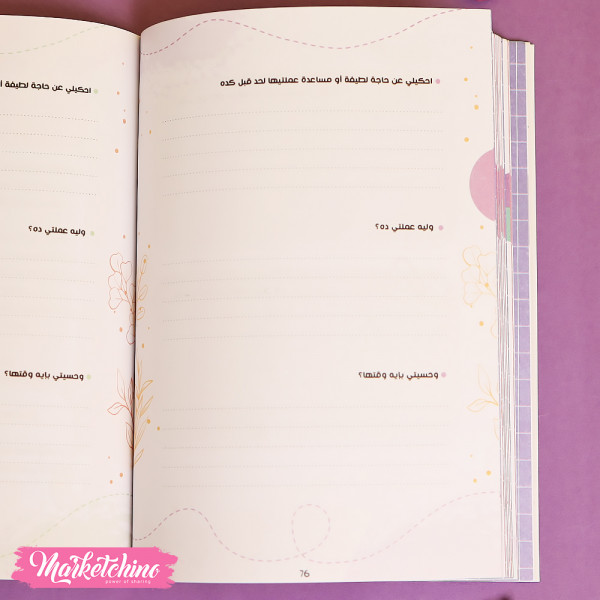 احكيلي عن حاجة لطيفة أو مساعدة عملتيها لحد قبل كده
وليه عملتي ده؟
وحسيتي بإيه وقتها؟
76
احكيلي عن حاجة لطيفة أ
وليه عملتي ده؟
وحسيتي بإيه وقتها؟
Marketchino
power of sharing